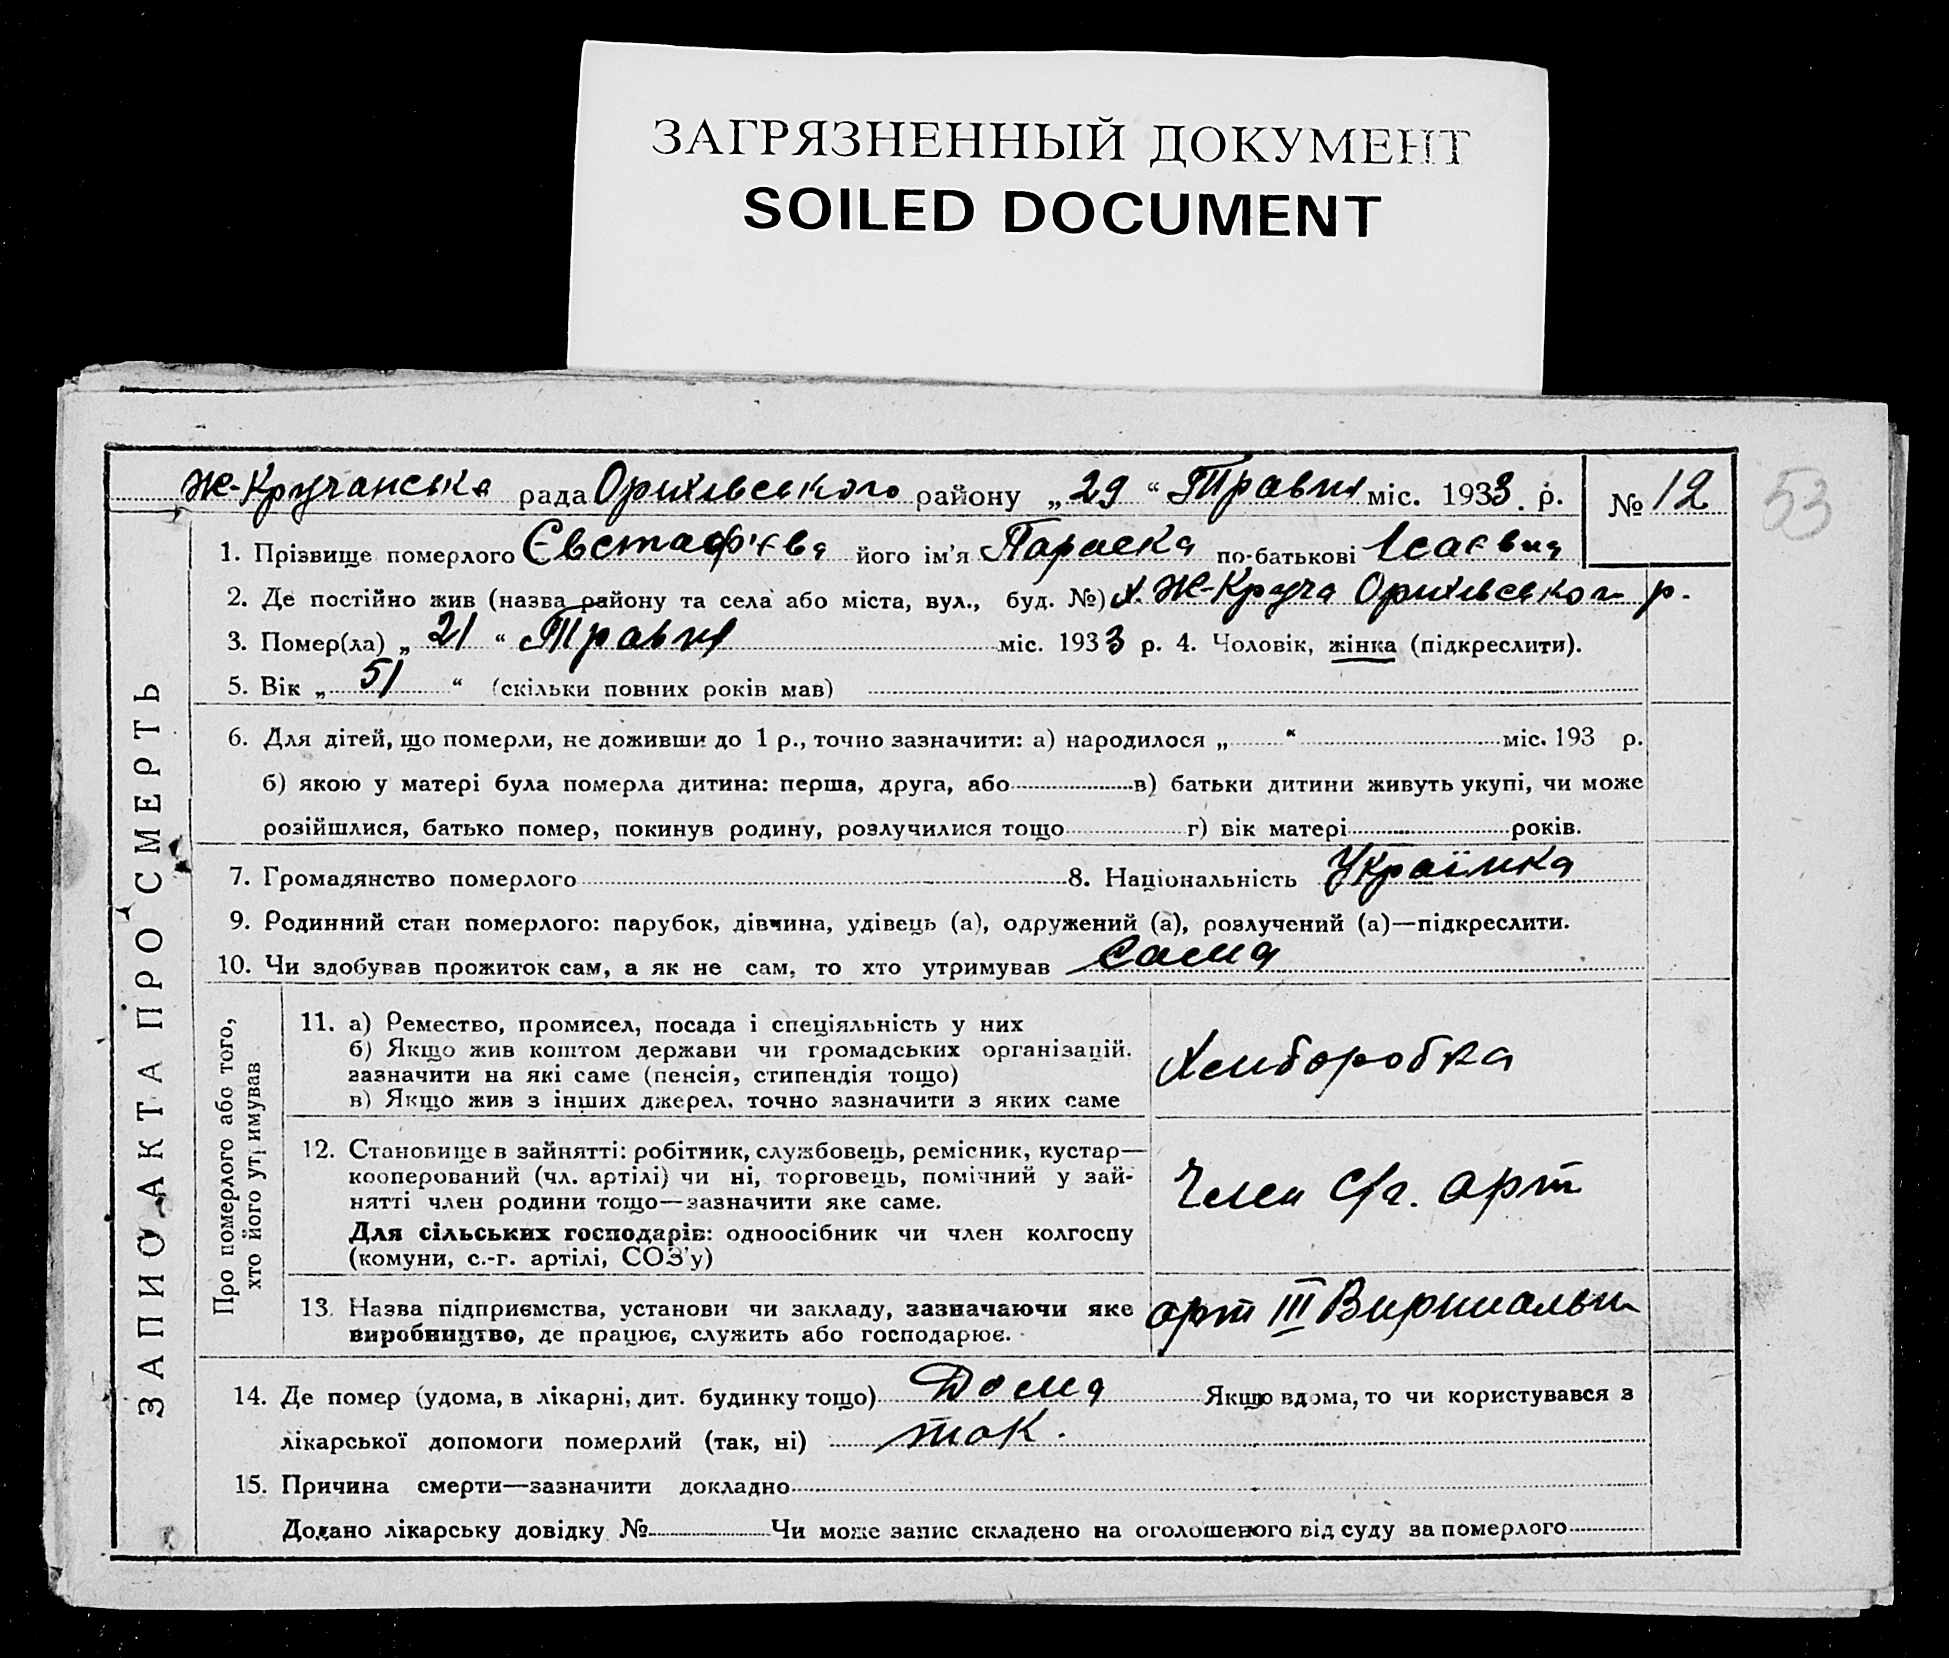 ЗАГРЯЗНЕННЫЙ ДОКУМЕНТ
SOILED DOCUMENT
Ж-Кручанська рада Оріхівського району „29“ Травня міс. 1933. р. № 12
53
1. Прізвище померлого Євстаф'єва його ім'я Параска по-батькові Ісаєвна
2. Де постійно жив (назва району та села або міста, вул., буд. №) х. Ж-Круча Оріхівськог р.
3. Помер(ла) „21“ Травня міс. 1933 р. 4. Чоловік, жінка (підкреслити).
5. Вік „51“ (скільки повних років мав)
6. Для дітей, що померли, не доживши до 1 р., точно зазначити: а) народилося „ “ міс. 193 р.
б) якою у матері була померла дитина: перша, друга, або в) батьки дитини живуть укупі, чи може
розійшлися, батько помер, покинув родину, розлучилися тощо г) вік матері років.
7. Громадянство померлого 8. Національність Українка
9. Родинний стан померлого: парубок, дівчина, удівець (а), одружений (а), розлучений (а)—підкреслити.
10. Чи здобував прожиток сам, а як не сам, то хто утримував сама
ЗАПИС АКТА ПРО СМЕРТЬ
Про померлого або того,
хто його утримував
11. а) Ремество, промисел, посада і спеціяльність у них
б) Якщо жив коштом держави чи громадських організацій.
зазначити на які саме (пенсія, стипендія тощо)
в) Якщо жив з інших джерел, точно зазначити з яких саме
Хлиборобка
12. Становище в зайнятті: робітник, службовець, ремісник, кустар—
кооперований (чл. артілі) чи ні, торговець, помічний у зай-
нятті член родини тощо—зазначити яке саме.
Для сільських господарів: одноосібник чи член колгоспу
(комуни, с.-г. артілі, СОЗ'у)
Член с/г. арт
13. Назва підприємства, установи чи закладу, зазначаючи яке
виробництво, де працює, служить або господарює.
арт III Вирішальн
14. Де помер (удома, в лікарні, дит. будинку тощо) Дома Якщо вдома, то чи користувався з
лікарської допомоги померлий (так, ні) так.
15. Причина смерти—зазначити докладно
Додано лікарську довідку № Чи може запис складено на оголошеного від суду за померлого